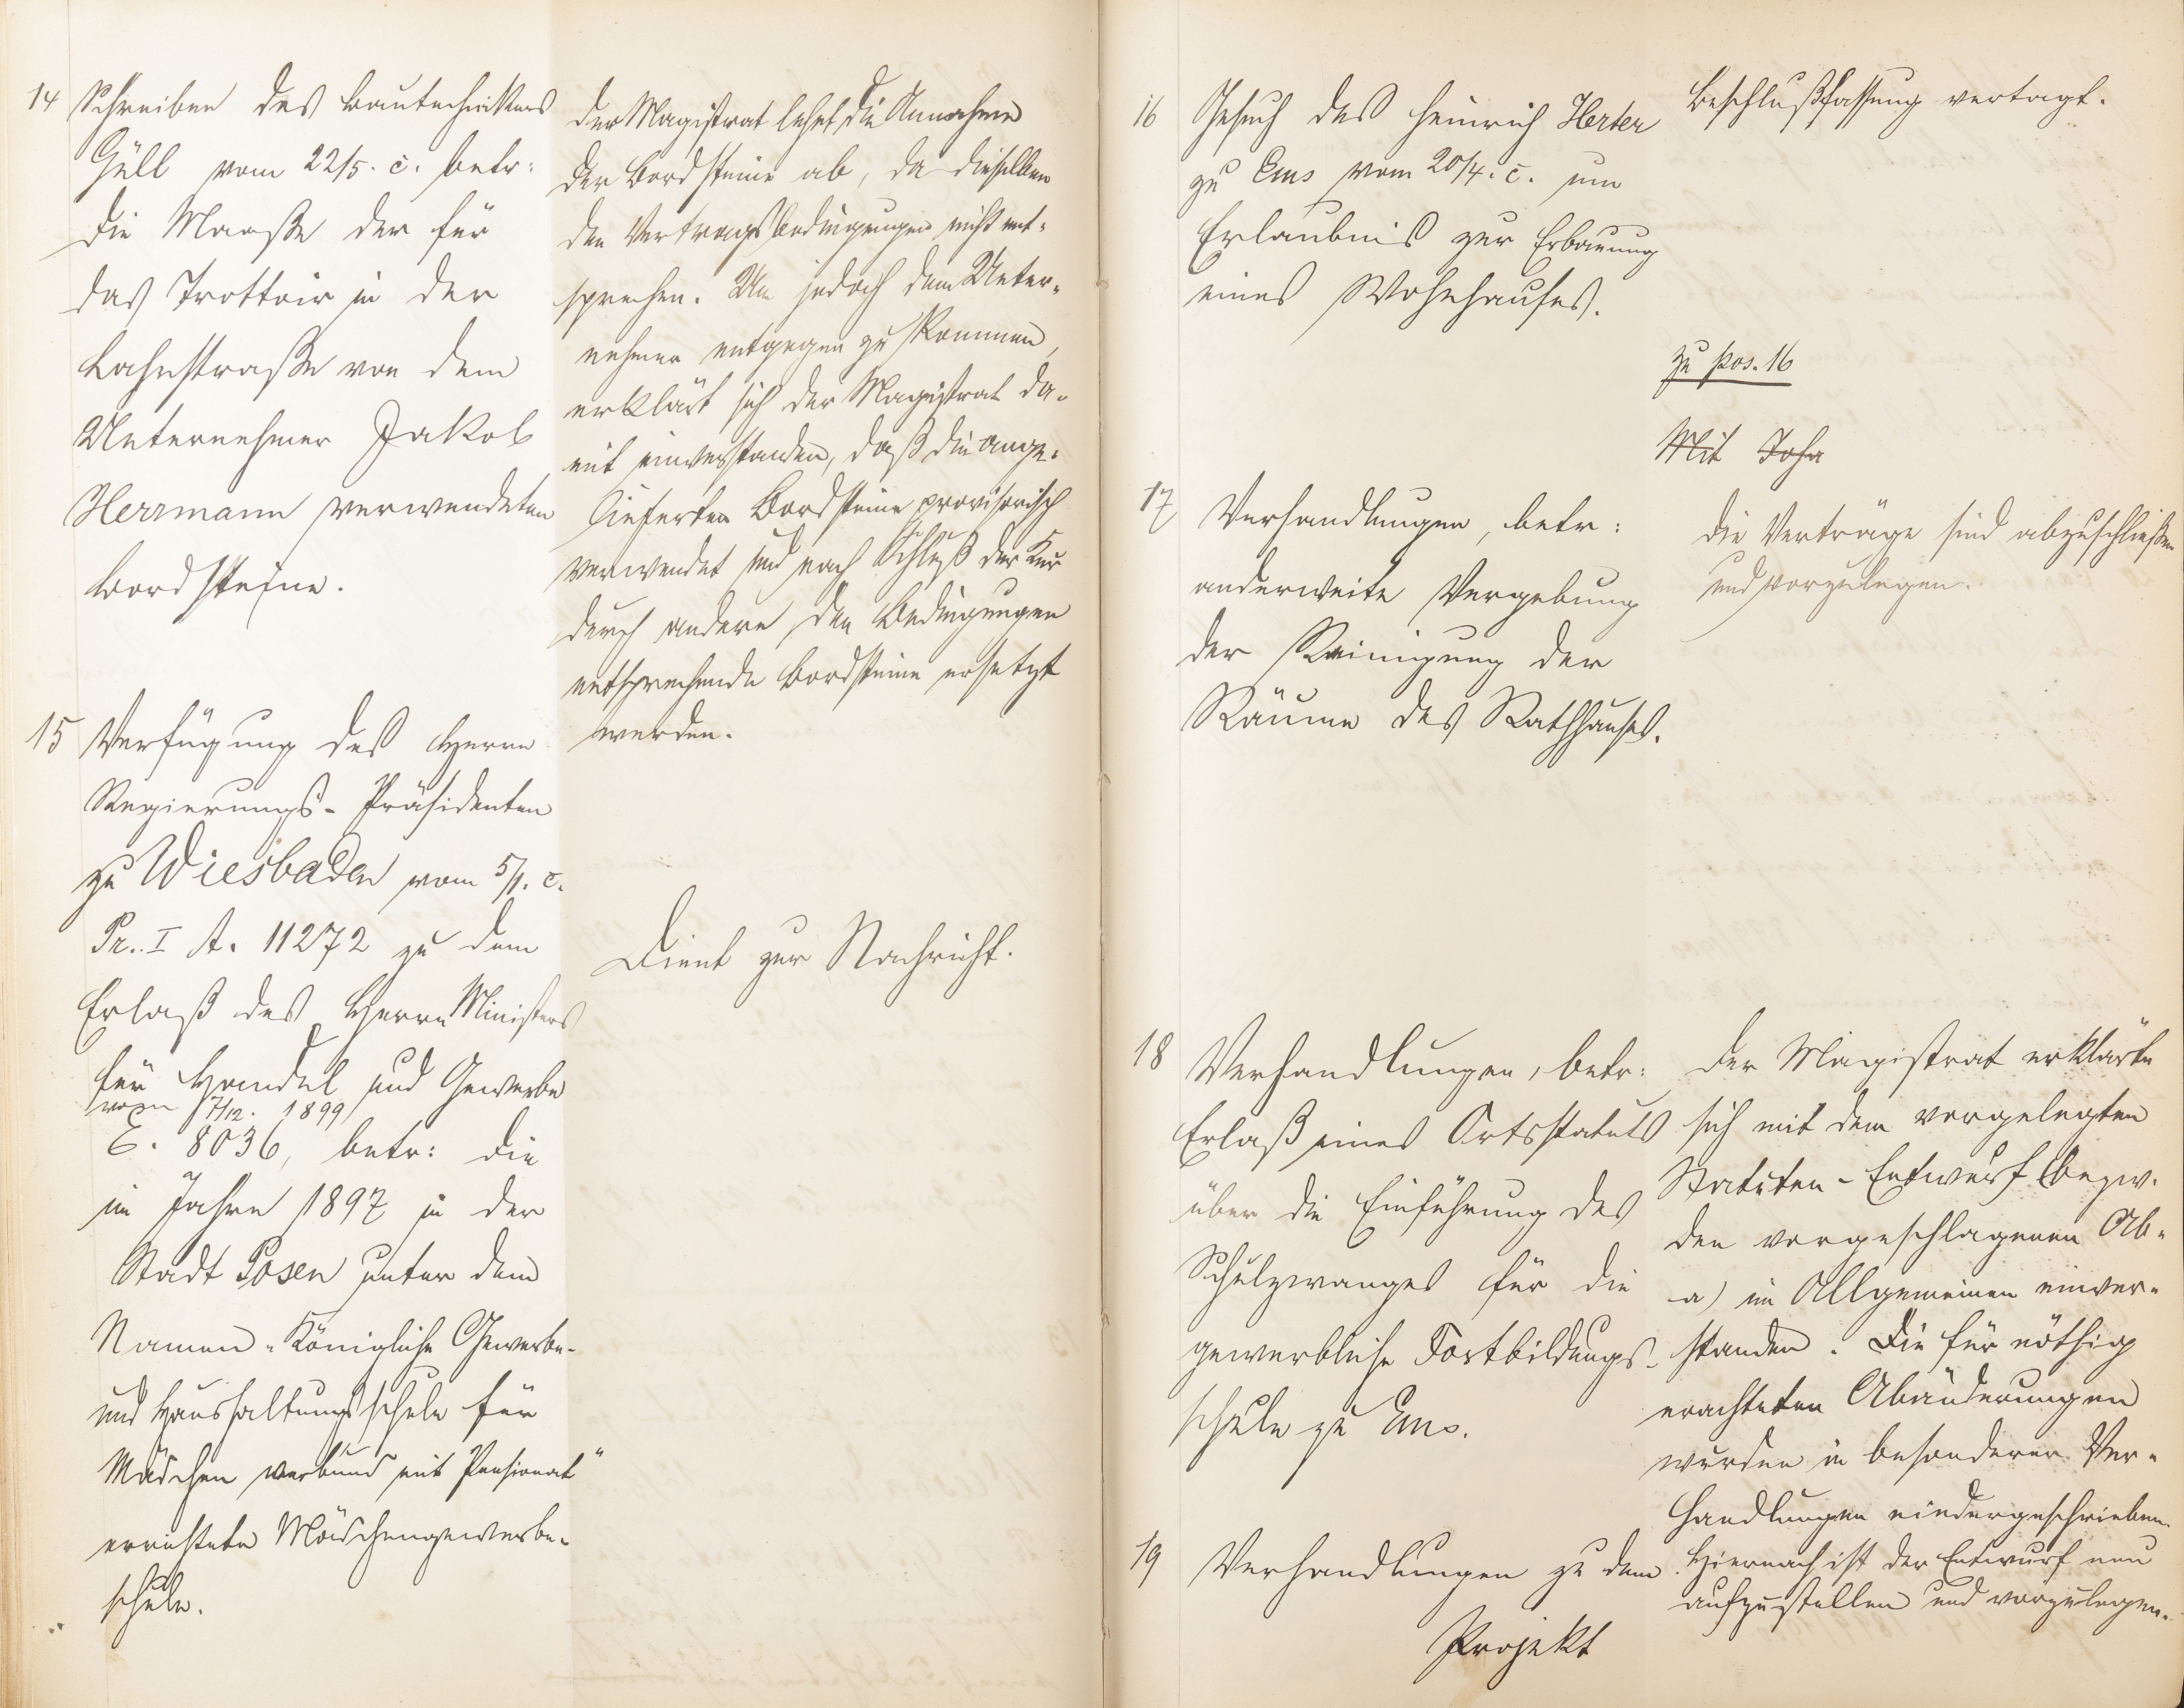 14 Schreiben des Bautechnikers
Güll vom 22/5. c. betr:
die Maaße der für
das Trottoir in der
Lahnstraße von dem
Unternehmer Jakob
Herrmann verwendeten
Bordsteine.
der Magistrat lehnt die Annahme
der Bordsteine ab, da dieselben
den Vertragsbedingungen nicht ent-
sprechen. Um jedoch dem Unter-
nehmer entgegen zu kommen,
erklärt sich der Magistrat da-
mit einverstanden, daß die ange-
lieferten Bordsteine provisorisch
verwendet und nach Schluß der Kur
durch andere den Bedingungen
entsprechende Bordsteine ersetzt
werden.
15 Verfügung des Herrn
Regierungs-Präsidenten
zu Wiesbaden vom 5/1. c.
Pr. I A. 11272 zu dem
Erlaß des Herrn Ministers
für Handel und Gewerbe
vom 7/12. 1899
E. 8036, betr: die
im Jahre 1897 in der
Stadt Posen unter dem
Namen "Königliche Gewerbe-
und Haushaltungsschule für
Mädchen verbund mit Pensionat"
errichtete Mädchengewerbe-
schule.
Dient zur Nachricht.
16 Gesuch des Heinrich Herter
zu Ems vom 20/4. c. um
Erlaubnis zur Erbauung
eines Wohnhauses.
Beschlußfassung vertagt.
zu pos. 16
Mit Joha
17 Verhandlungen, betr:
anderweite Vergebung
der Reinigung der
Räume des Rathhauses.
die Verträge sind abzuschließen
und vorzulegen.
18 Verhandlungen, betr:
Erlaß eines Ortsstatuts
über die Einführung des
Schulzwanges für die
gewerbliche Fortbildungs-
schule zu Ems.
der Magistrat erklärte
sich mit dem vorgelegten
Statuten-Entwurf bezw.
den vorgeschlagenen Ab-
a) im Allgemeinen einver-
standen. Die für nöthig
erachteten Abänderungen
wurden in besonderer Ver-
handlungen niedergeschrieben.
Hiernach ist der Entwurf neu
aufzustellen und vorzulegen.
19 Verhandlungen zu dem
Projekt